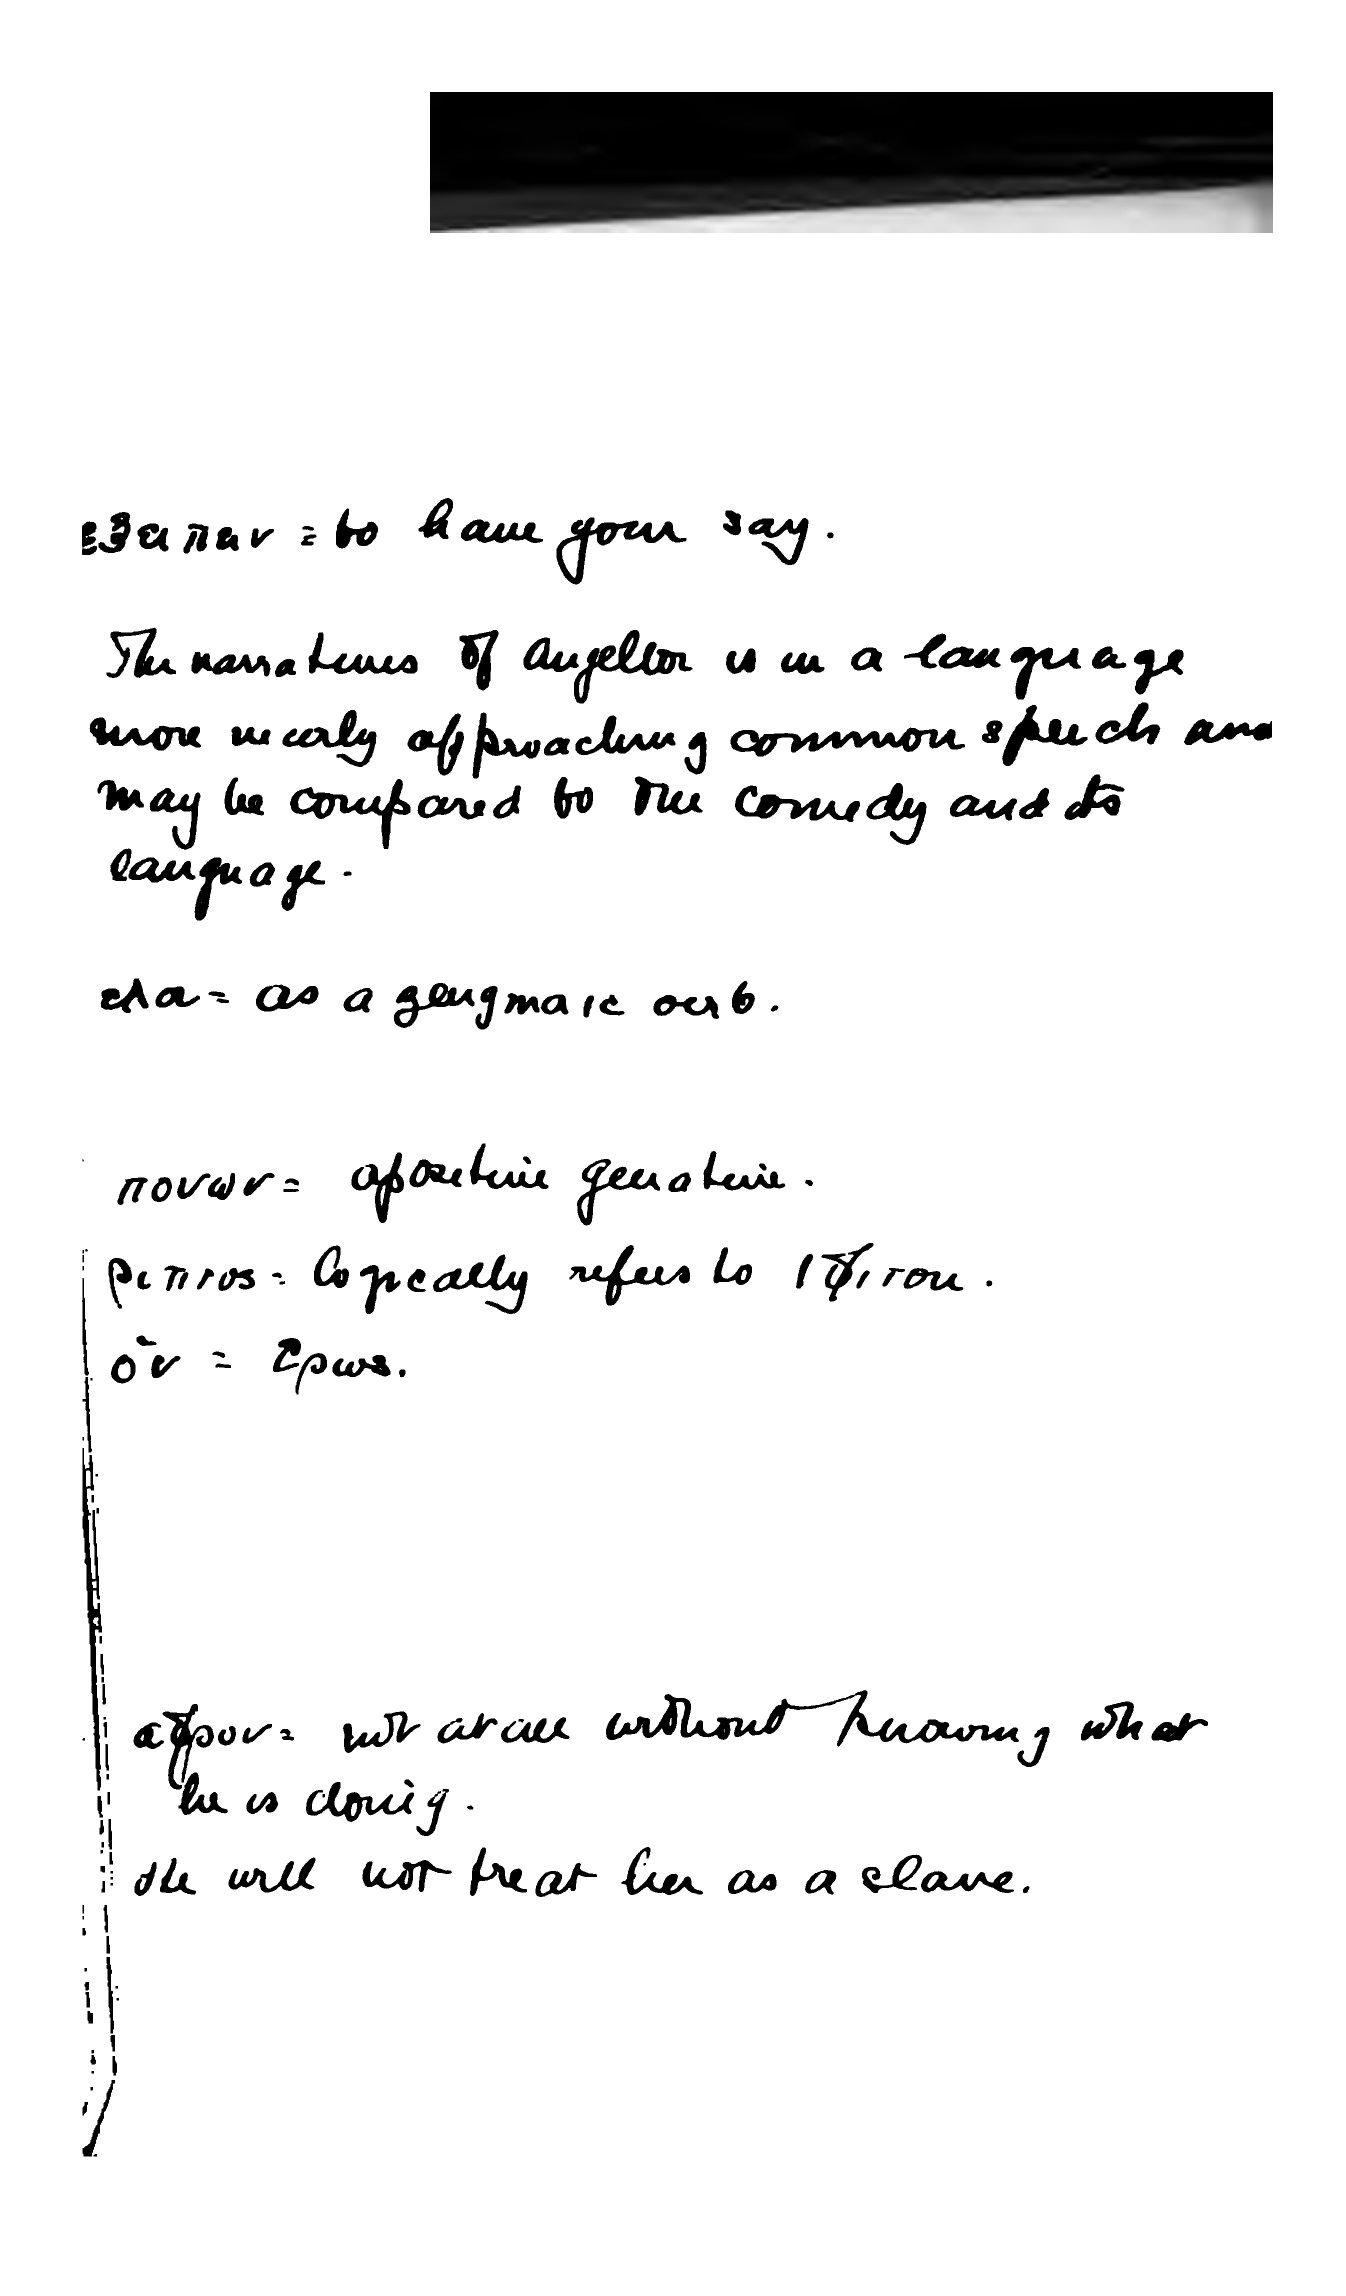 εξειπειν = to have your say.
The narratives of Angellor is in a language
more nearly approaching common speech and
may be compared to the comedy and its
language.
ελα = as a zeugmaic verb.
πονων = apositive genative.
ριπτος = logically refers to
ον = Ερως.
αφρον = not at all without knowing what
he is doing.
He will not treat her as a slave.